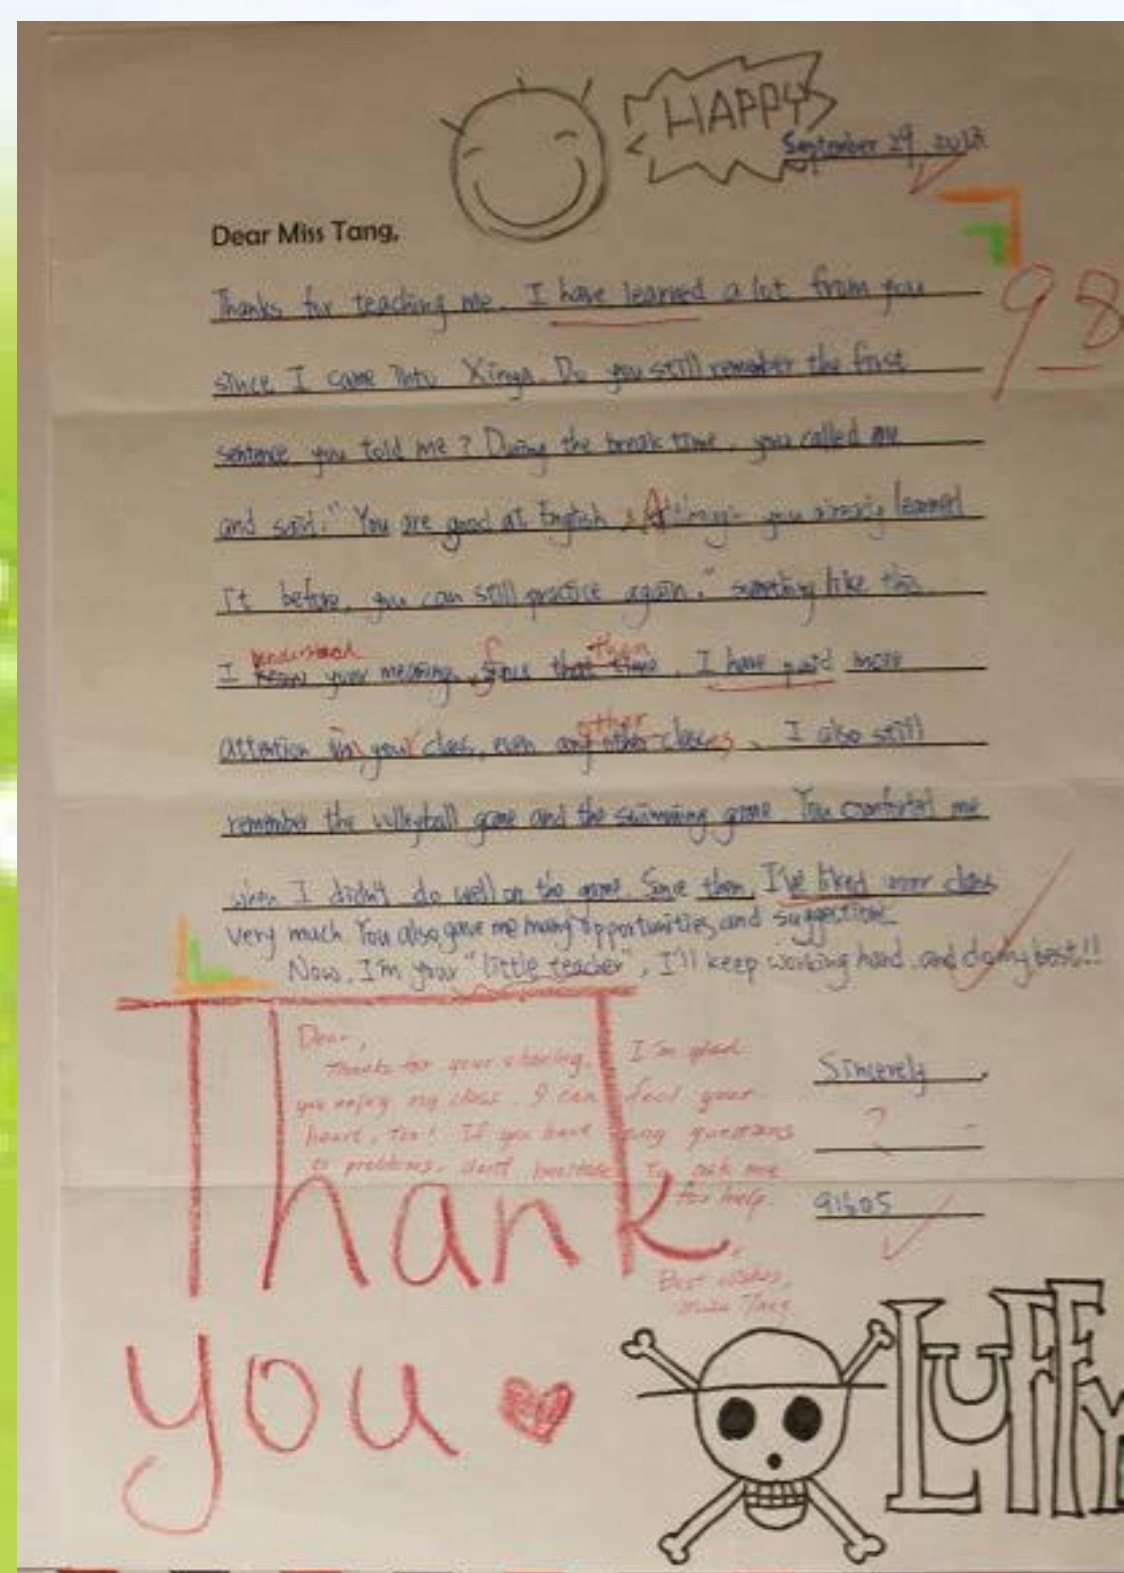 HAPPY
September 29, 2013
Dear Miss Tang,
98
Thanks for teaching me. I have learned a lot from you
since I came into Xinya. Do you still remember the first
sentence you told me? During the break time, you called me
and said, "You are good at English. Although you already learned
it before, you can still practice again." something like this.
understand then
I know your meaning. Since that time, I have paid more
other
attention in your class, even any other classes. I also still
remember the volleyball game and the swimming game. You comforted me
when I didn't do well on the game. Since then, I've liked your class
very much. You also gave me many opportunities and suggestions.
Now, I'm your "little teacher", I'll keep working hard and do my best!!
Dear,
Thanks for your sharing. I'm glad
you enjoy my class. I can feel your
heart, too! If you have any questions
or problems, don't hesitate to ask me
for help.
Best wishes,
Sincerely,
?
91605
Thank
you
LUFFY